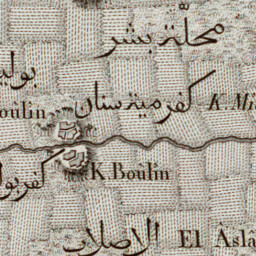 محلّة بشر
بولين
oulin
كفر ميةستان
K. Mi
كفر بو
K Boulin
الاصلات
El Aslâ